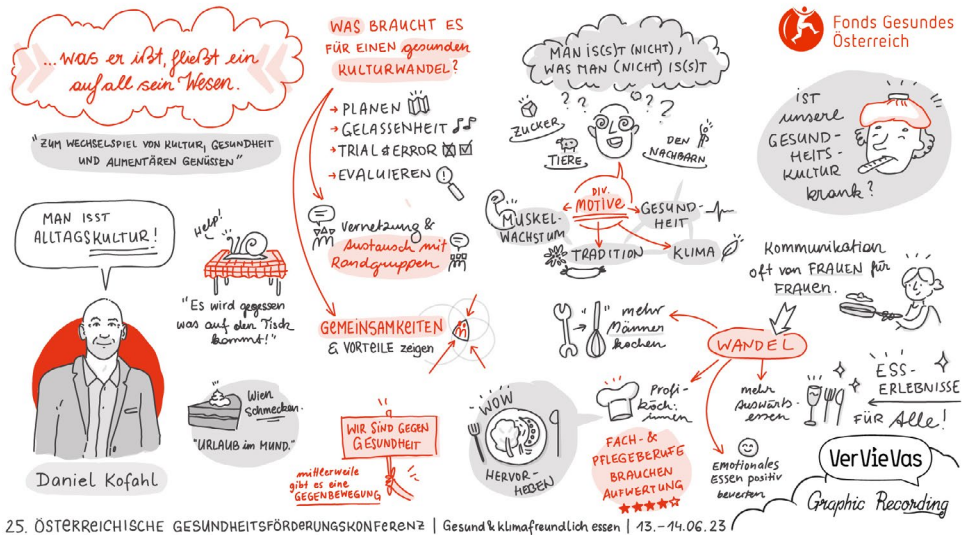 ...was er ißt, fließt ein
auf all sein Wesen.
"ZUM WECHSELSPIEL VON KULTUR, GESUNDHEIT
UND ALIMENTÄREN GENÜSSEN"
MAN ISST
ALLTAGSKULTUR!
Daniel Kofahl
Help!
"Es wird gegessen
was auf den Tisch
kommt!"
Wien
Schmecken.
"URLAUB im MUND."
WAS BRAUCHT ES
FÜR EINEN gesunden
KULTURWANDEL?
→ PLANEN
→ GELASSENHEIT
→ TRIAL & ERROR
→ EVALUIEREN
Vernetzung &
Austausch mit
Randgruppen
GEMEINSAMKEITEN
& VORTEILE zeigen
WIR SIND GEGEN
GESUNDHEIT
mittlerweile
gibt es eine
GEGENBEWEGUNG
MAN IS(S)T (NICHT),
WAS MAN (NICHT) IS(S)T
? ? ? ?
ZUCKER
TIERE
DEN
NACHBARN
DIV.
MOTIVE
MUSKEL-
WACHSTUM
GESUND-
HEIT
TRADITION
KLIMA
Fonds Gesundes
Österreich
IST
unsere
GESUND-
HEITS-
KULTUR
krank?
Kommunikation
oft von FRAUEN für
FRAUEN.
WANDEL
mehr
Männer
kochen
Profi-
köch:
innen
WOW
HERVOR-
HEBEN
FACH- &
PFLEGEBERUFE
BRAUCHEN
AUFWERTUNG
mehr
Auswärts-
essen
Emotionales
Essen positiv
bewerten
ESS-
ERLEBNISSE
FÜR Alle!
VerVieVas
Graphic Recording
25. ÖSTERREICHISCHE GESUNDHEITSFÖRDERUNGSKONFERENZ | Gesund & klimafreundlich essen | 13.-14.06.23